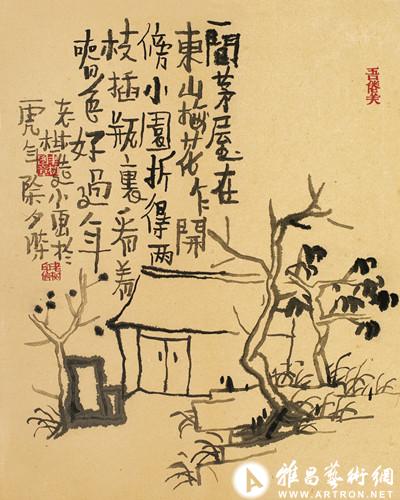 吾俗美
一間茅屋在
東山梅花乍開
傍小園折得兩
枝插瓶裏看着
春色好過年
老樹造小画於
虎年除夕際
雅昌藝術網
WWW.ARTRON.NET